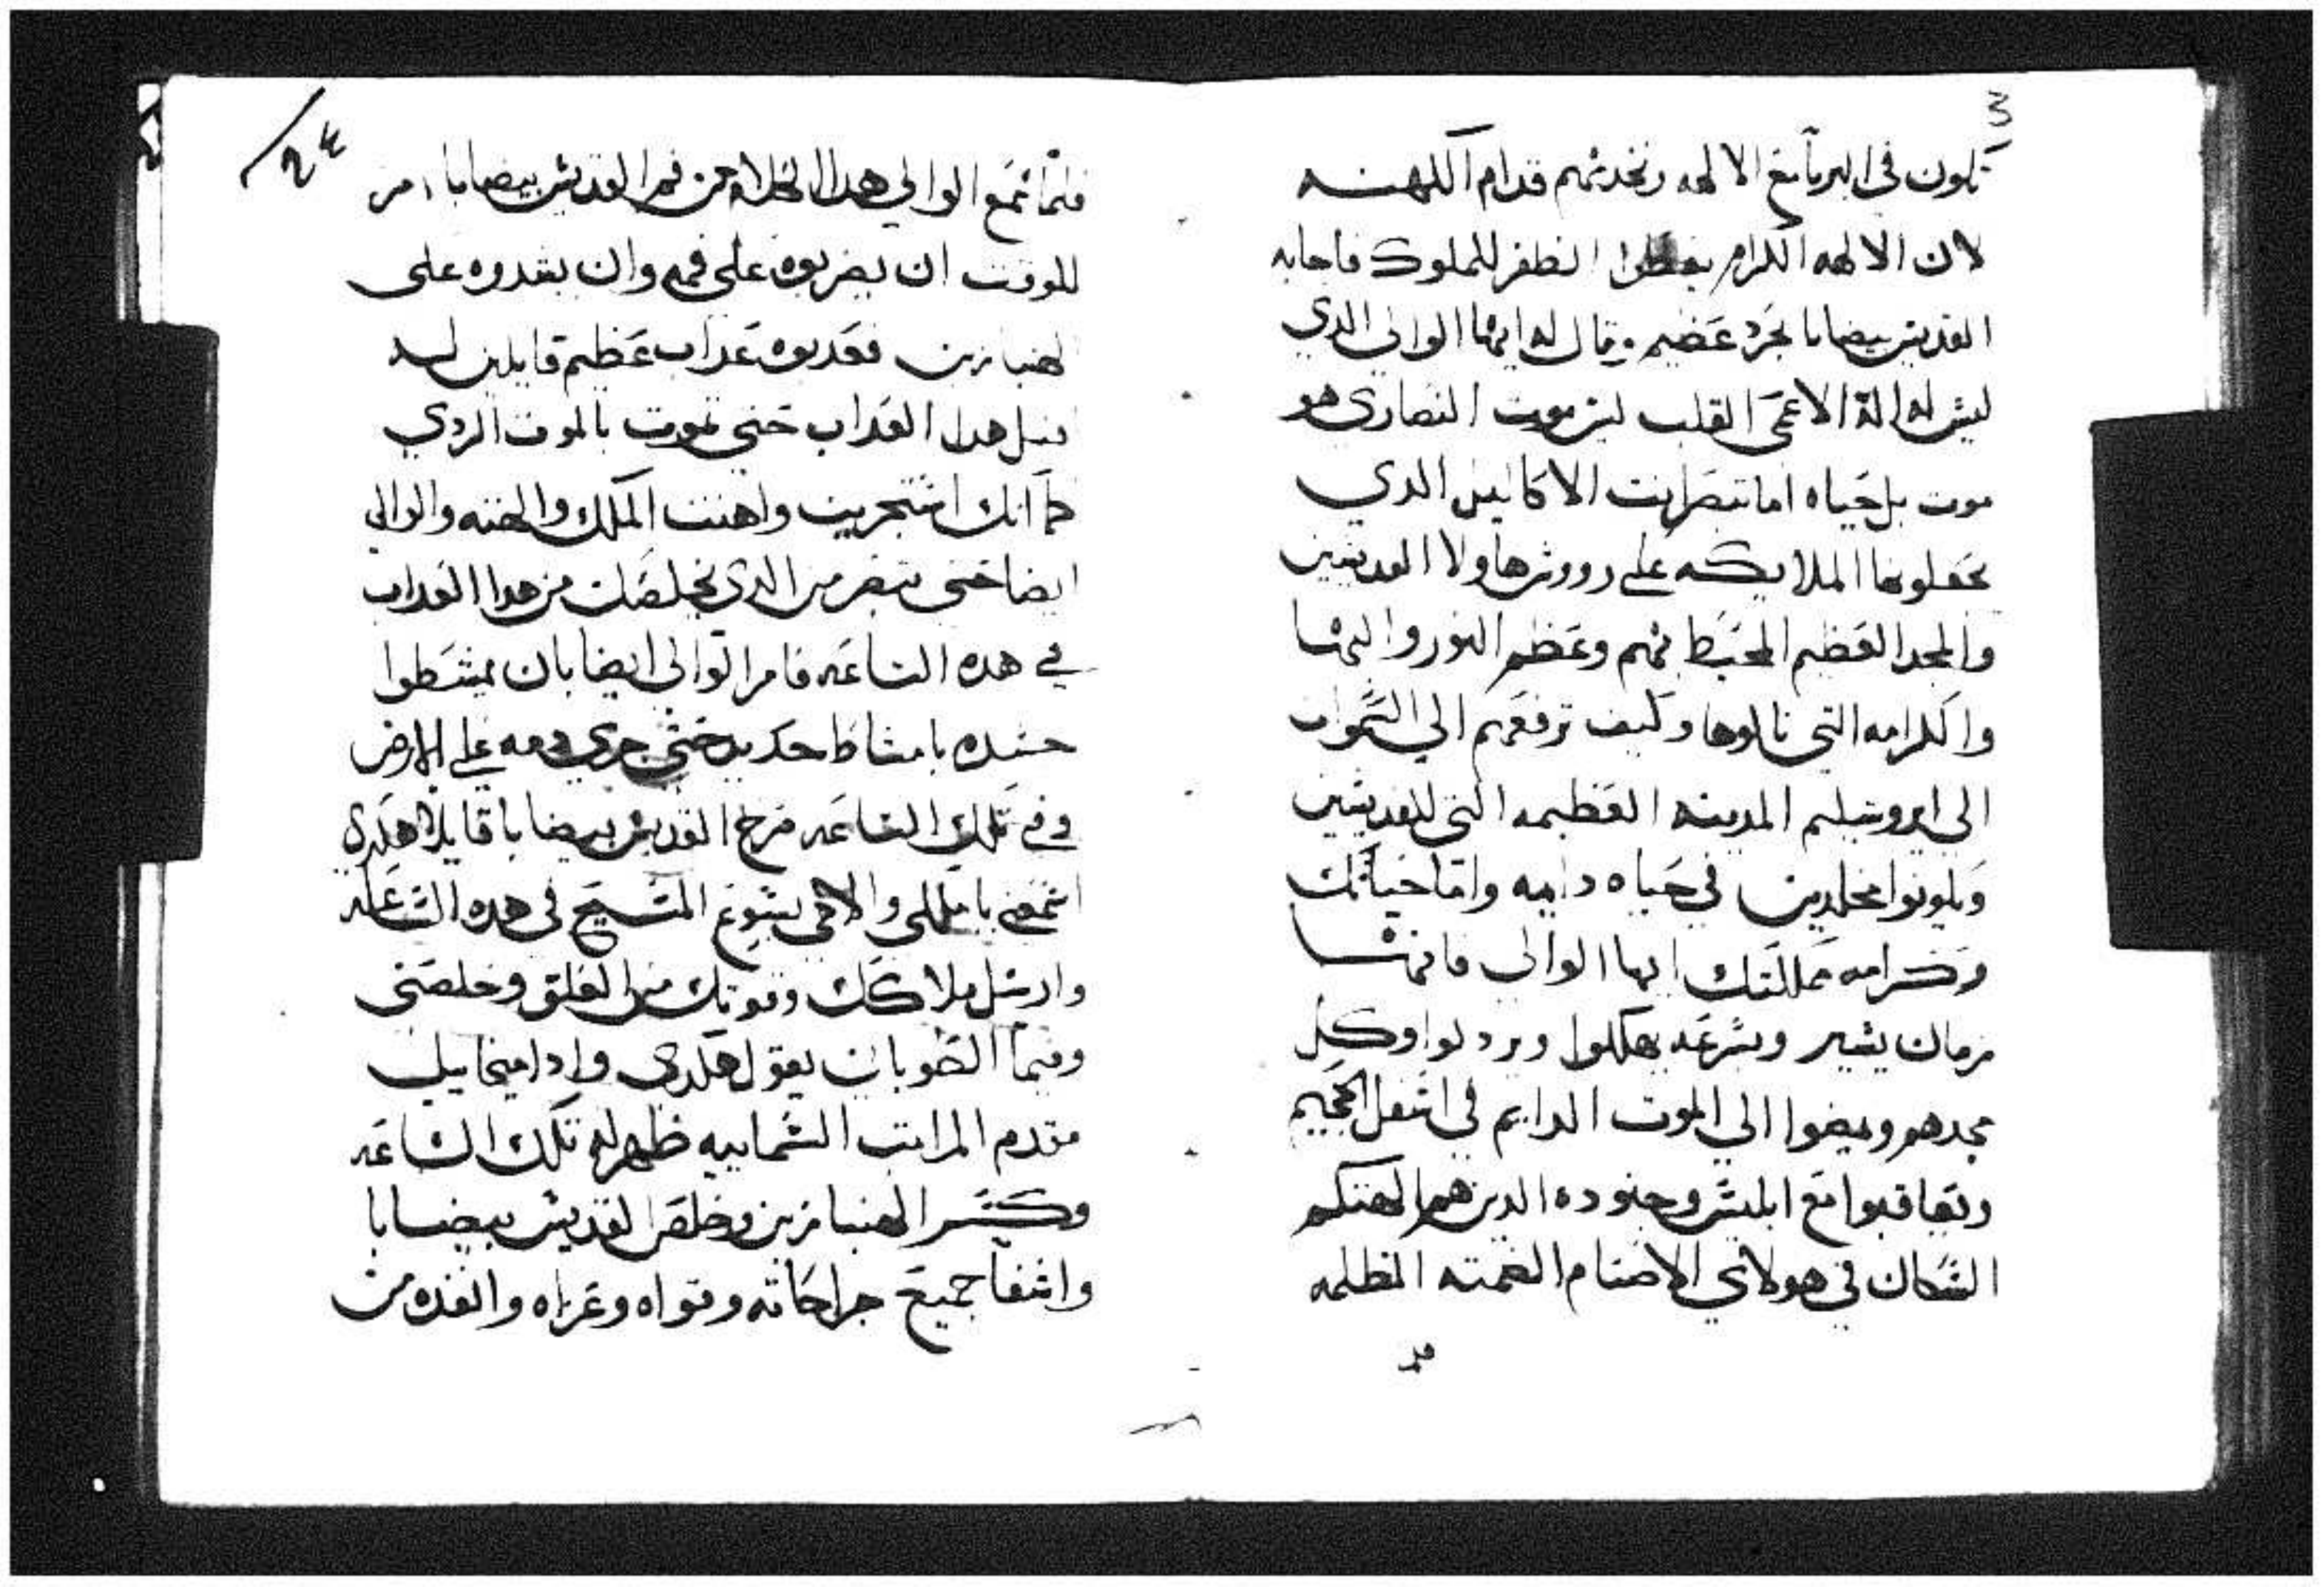 تكون في البربا مع الالهه وتخدمهم قدام الكهنه
لان الالهه الكرام يعطوا الظفر للملوك فاجابه
القديس بيضابا بحرد عضيم وقال له ايها الوالي الدي
ليس له اله الاعمي القلب ليس موت النصاري هو
موت بل حياه اما تبصر انت الاكاليل الدي
يجعلونها الملايكه علي رووس هاولا القديسين
والمجد العظيم المحيط بهم وعظم النور والبها
والكرامه التي نالوها وكيف ترفعهم الي السموات
الي ايروشليم المدينه العظيمه التي للقديسين
ويكونوا مخلدين في حياه دايمه واما حياتك
وكرامه مملكتك ايها الوالي فانها
زمان يسير وبسرعه يهلكوا ويزولوا وكل
مجدهم ويمضوا الي الموت الدايم في اسفل الجحيم
وتعاقبوا مع ابليس وجنوده الدين هم الهتكم
السكان في هولاي الاصنام الصمته المظلمه
فلما سمع الوالي هدا الكلام من فم القديس بيضابا امر
للوقت ان يضربوه علي فمه وان يشدوه علي
الهنبازين فعدبوه عداب عظيم قايلين له
مثل هدا العداب حتي تموت بالموت الردي
كما انك استجريت واهنت الملك والهته والوالي
ايضا حتي ننضر من الدي يخلصك من هدا العداب
في هده الساعه فامر الوالي ايضا بان يمشطوا
جسده بامشاط حديد حتي جري دمه علي الارض
وفي تلك الساعه صرخ القديس بيضابا قايلا هكدي
اسمعني يا ملكي والاهي يسوع المسيح في هده الساعه
وارسل ملاكك وقوتك من العلو وخلصني
وفيما الطوبان يقول هكدي وادا ميخاييل
مقدم المراتب السماييه ظهر له تلك الساعه
وكسر الهنبازين وخلص القديس بيضابا
واشفا جميع جراحاته وقواه وعزاه وانقده من